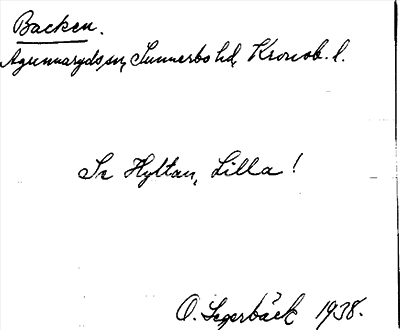 Backen.
Agunnaryds sn, Sunnerbo hd, Kronob. l.
Se Hyltan, Lilla!
O. Segerbäck 1938.